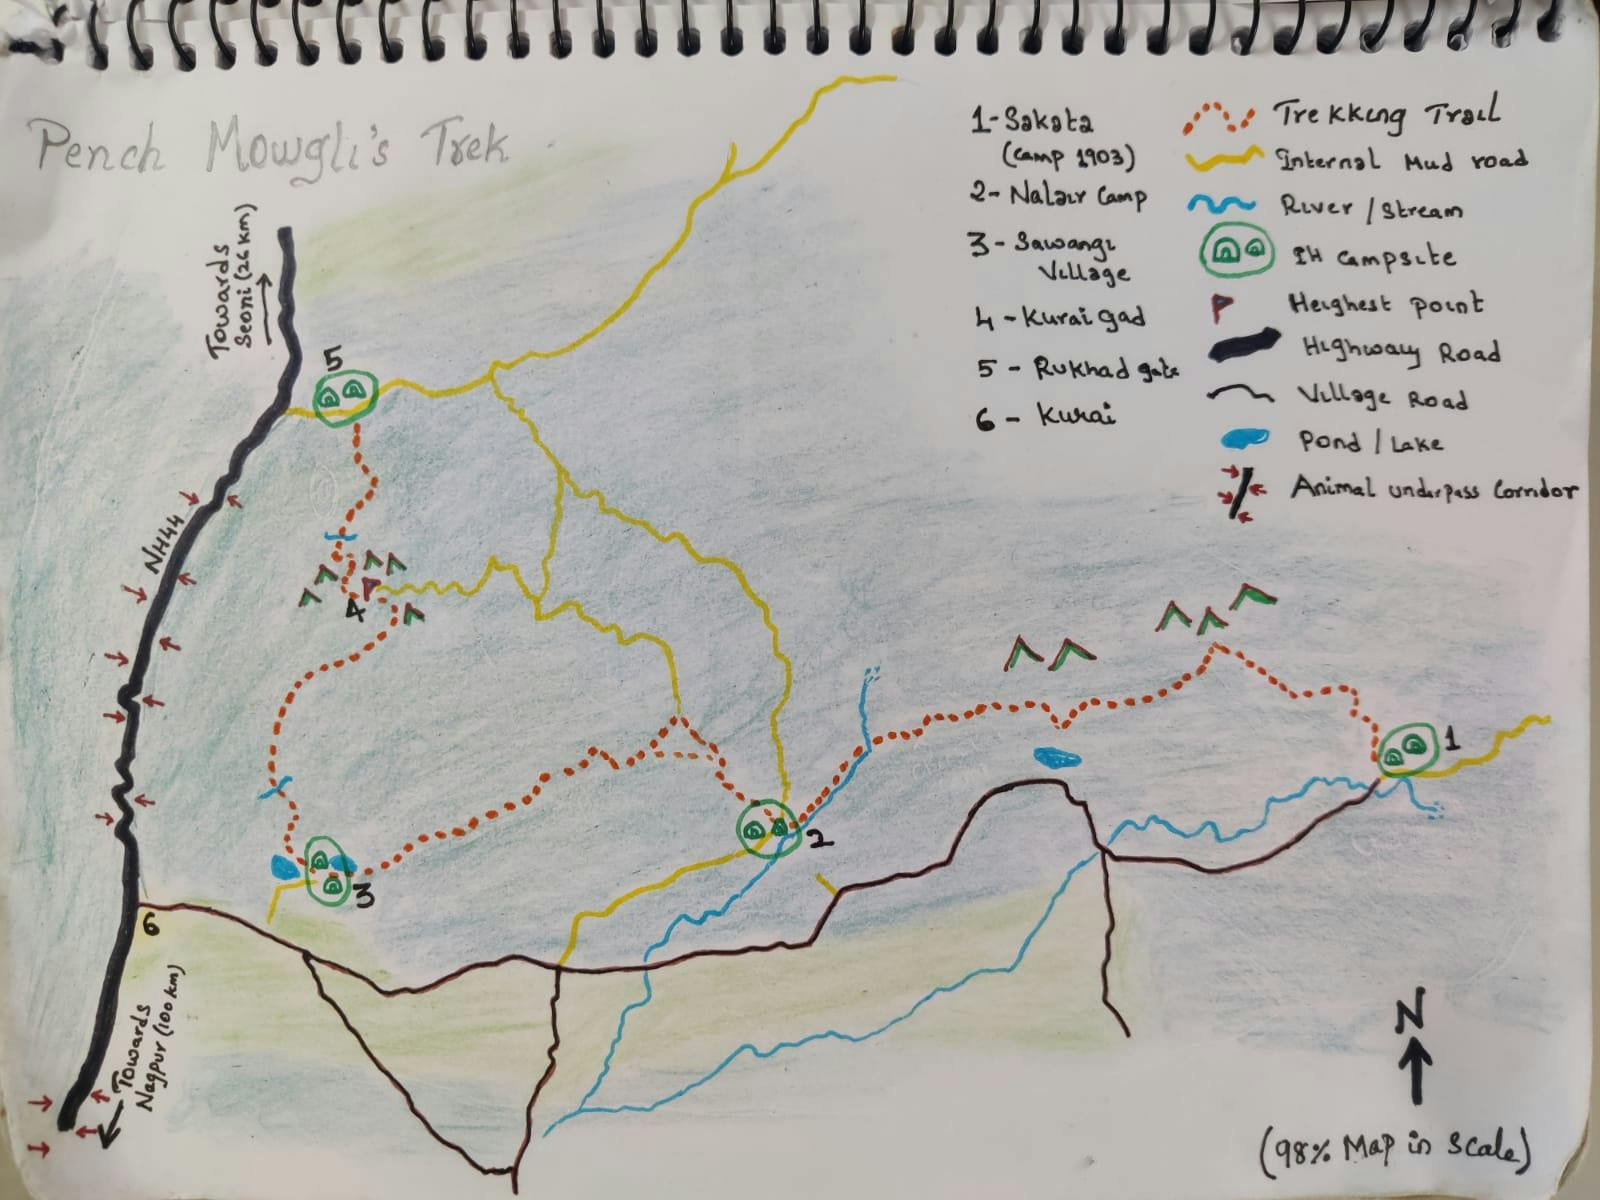 Pench Mowgli's Trek
1-Sakata
(Camp 1903)
2- Nalair Camp
3- Sawangi
Village
4 - Kurai gad
5 - Rukhad gate
6 - Kurai
Trekking Trail
Internal Mud road
River / Stream
IH Campsite
Heighest point
Highway Road
Village Road
Pond / Lake
Animal underpass Corridor
Towards
Seoni (26 km)
5
NH44
4
1
2
3
6
Towards
Nagpur (100 km)
N
(98% Map in Scale)